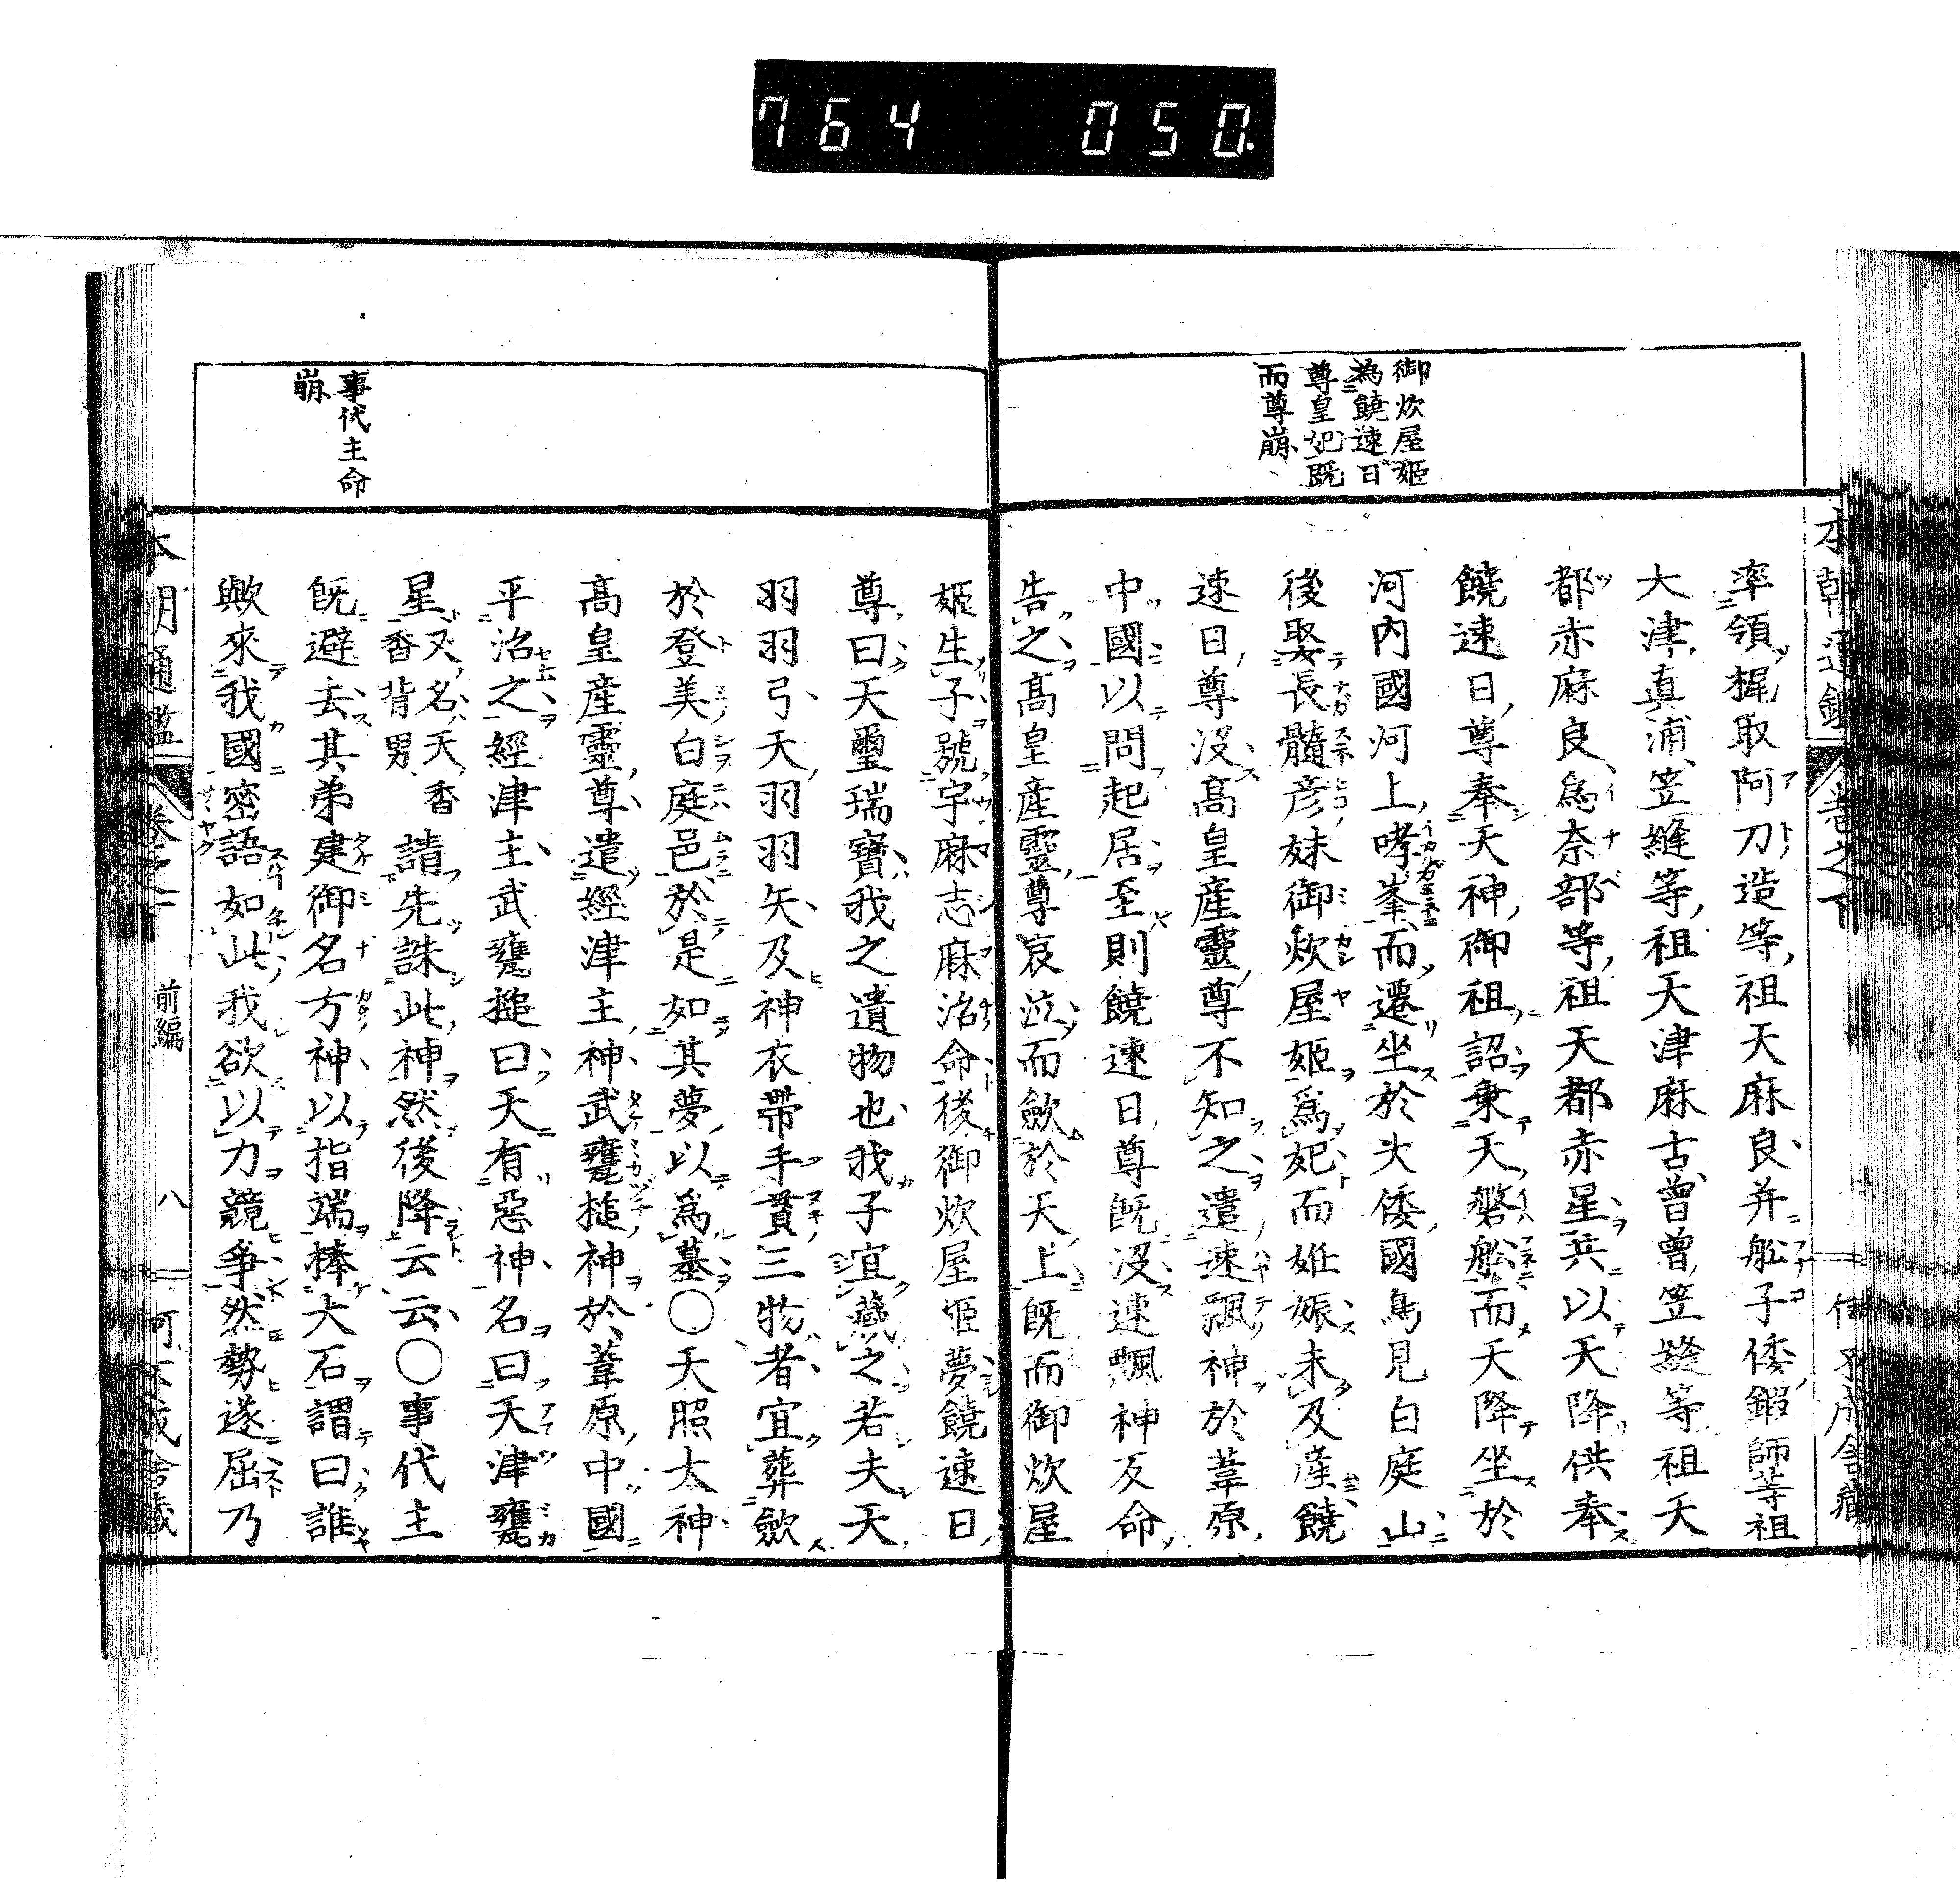 764 050.
御炊屋姬
為饒速日
尊皇妃既
而尊崩
率領梶取阿刀造等祖天麻良并舩子倭鍛師等祖
大津真浦笠縫等祖天津麻古曾曾笠縫等祖天
都赤麻良為奈部等祖天都赤星兵以天降供奉
饒速日尊奉天神御祖詔乗天磐舩而天降坐於
河內國河上哮峯而遷坐於大倭國鳥見白庭山
後娶長髓彦妹御炊屋姬為妃而姙娠未及産饒
速日尊沒髙皇産靈尊不知之遣速飄神於葦原
中國以問起居至則饒速日尊既沒速飄神反命
告之髙皇産靈尊哀泣而斂於天上既而御炊屋
事代主命
崩
姬生子號宇麻志麻治命後御炊屋姬夢饒速日
尊曰天璽瑞寶我之遺物也我子宜藏之若夫天
羽羽弓天羽羽矢及神衣帶手貫三物者宜葬斂
於登美白庭邑於是如其夢以為墓○天照太神
髙皇産靈尊遣經津主神武甕槌神於葦原中國
平治之經津主武甕槌曰天有惡神名曰天津甕
星又名天香香背男請先誅此神然後降云云○事代主
既避去其弟建御名方神以指端捧大石謂曰誰
歟來我國密語如此我欲以力競爭然勢遂屈乃
本朝通鑑 卷之下 前編 八